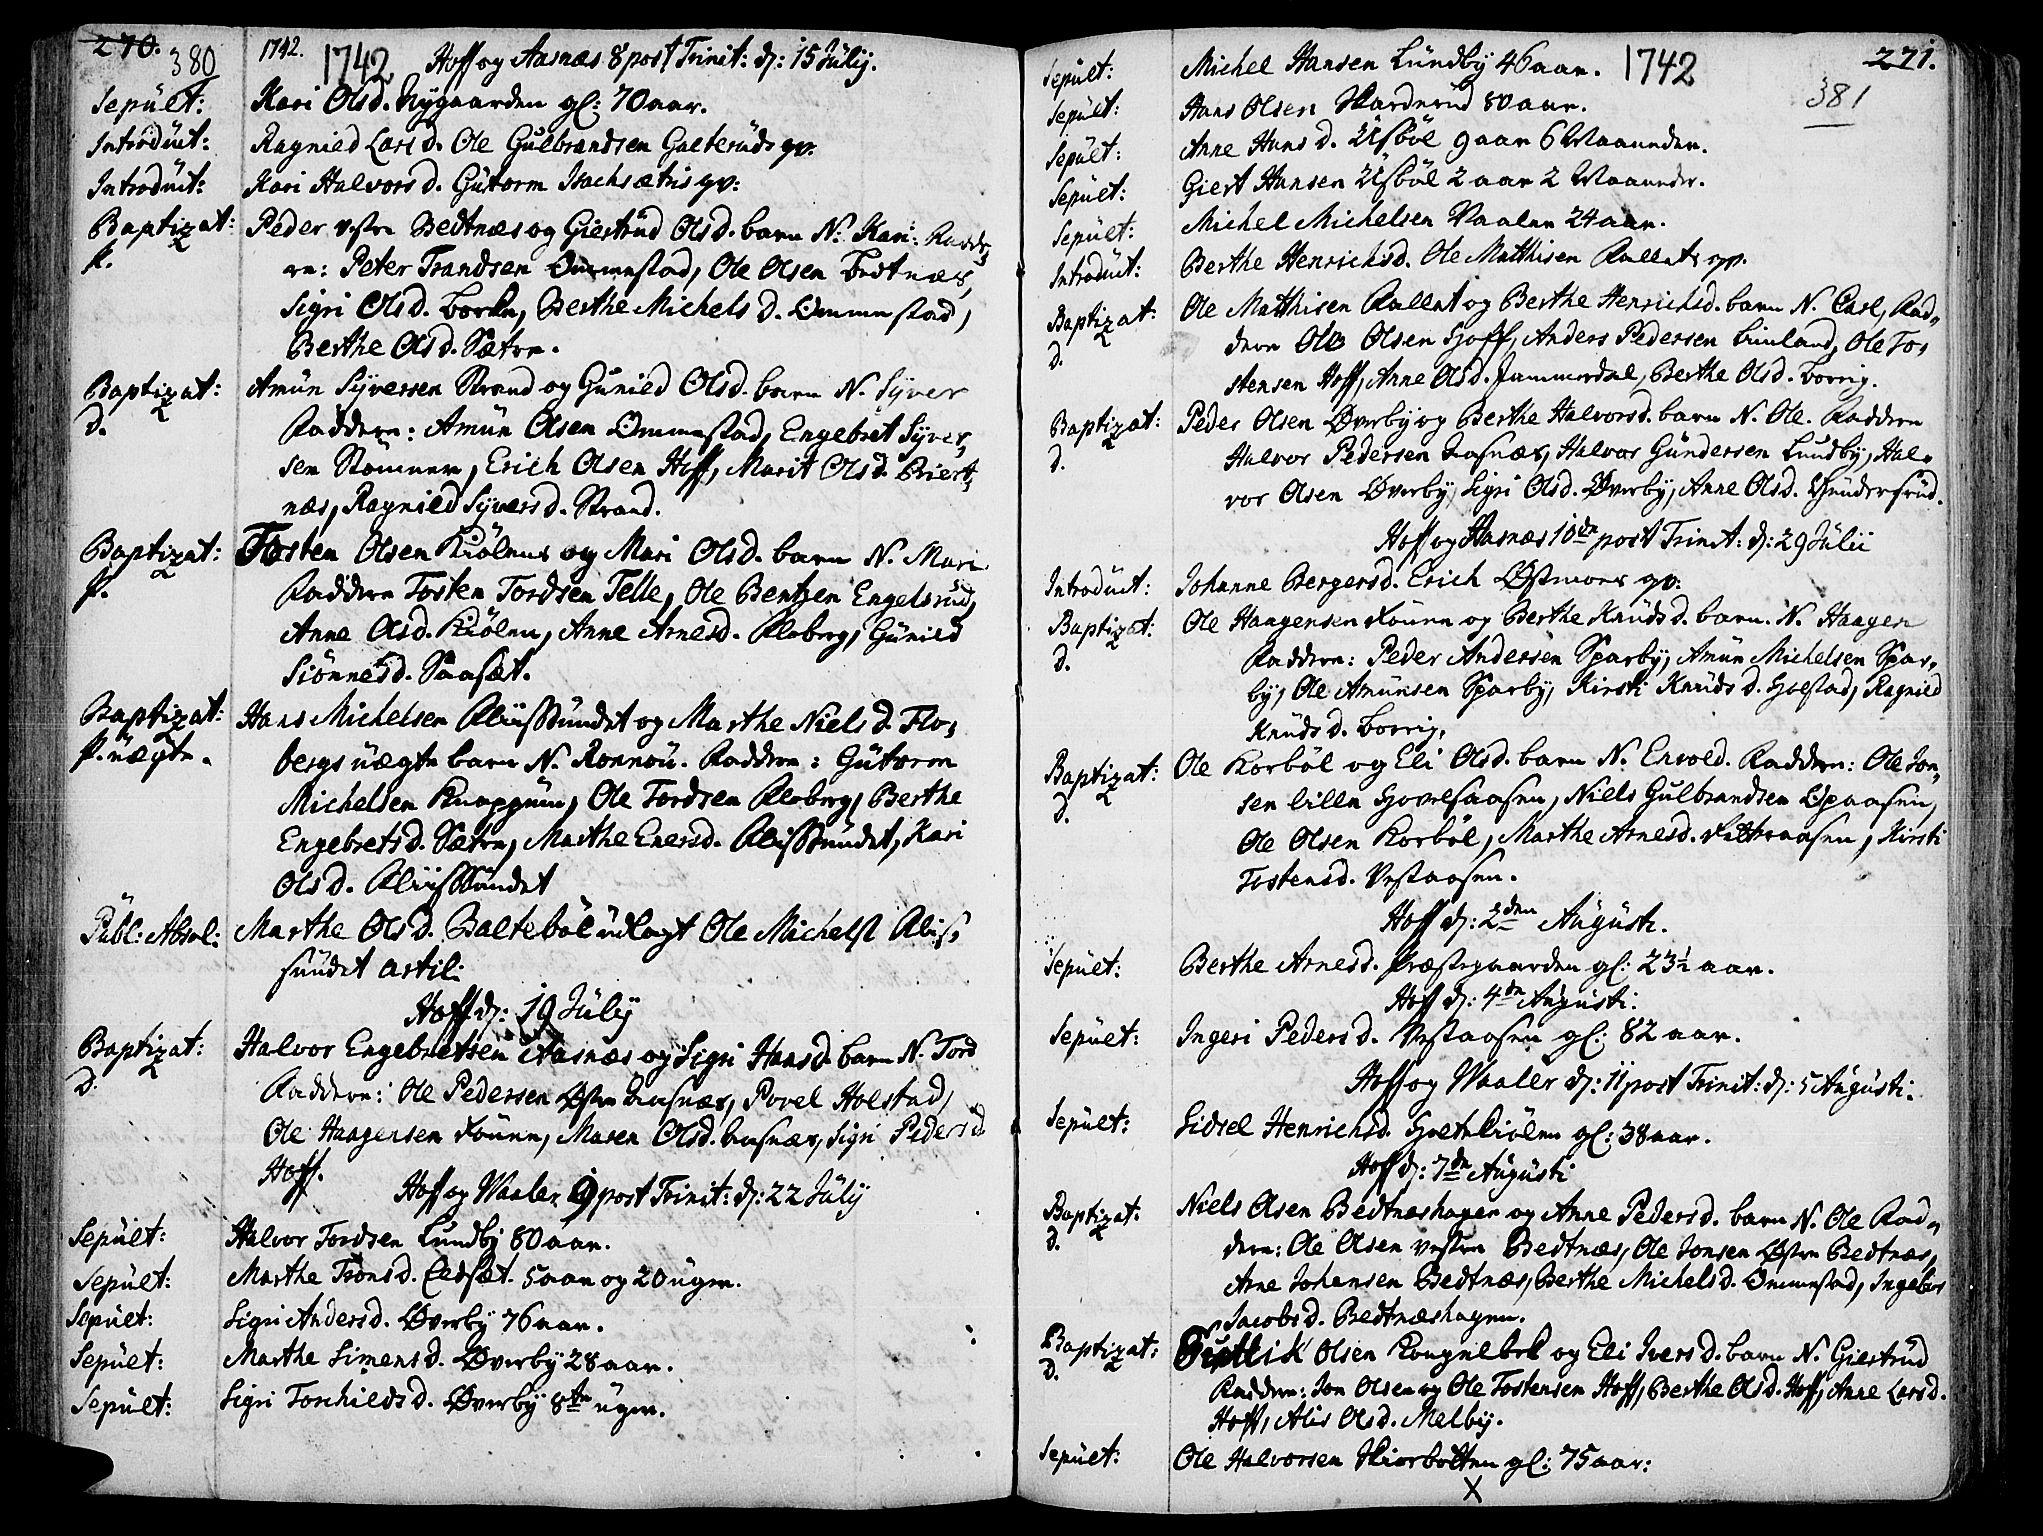 270. 380 1742. 1742 Hoff og Aasnæs 8 post Trinit: d: 15 Julij.
Sepult: Kari Olsd. Nygaarden gl: 70 aar.
Introduct: Ragnild Larsd. Ole Gulbrandsen Galteruds qv.
Introduct: Kari Halvorsd. Gutorm Isachsætris qv:
Baptizat: Peder vestre Bedtnæs og Giertrud Olsd. barn N. Kari. Fadde-
p. re: Peter Trandsen Ommestad, Ole Olsen Bedtnæs,
Sigri Olsd. Borke, Berthe Michelsd. Ommestad,
Berthe Olsd. Sætre.
Baptizat: Amun Syversen Strand og Gunild Olsd. barn N. Syver
d. Faddere: Amun Olsen Ommestad, Engebret Syver-
sen Stømner, Erich Olsen Hoff, Marit Olsd.
næs, Ragnild Syversd. Strand.
Baptizat: Tosten Olsen Kiølens og Mari Olsd. barn N. Mari
p. Faddere Tosten Tordsen Telle, Ole Bentsen Engelsrud,
Anne Olsd. Kiølen, Anne Arnesd. Floberg, Gunild
Siønnesd. Saasæt.
Baptizat: Hans Michelsen Fliissundet og Marthe Nielsd. Flo-
p. uægte. bergs uægte barn N. Ronnou. Faddere: Gutorm
Michelsen Knappum, Ole Tordsen Floberg, Berthe
Engebretsd. Sætre, Marthe Enersd. Fliissundet, Kari
Olsd. Fliissundet
Publ: Absol: Marthe Olsd. Baltebøl udlagt Ole Michels. Fliis-
sundet artil:
Hoff d: 19 Julij
Baptizat: Halvor Engebretsen Aasnæs og Sigri Hansd. barn N. Tord
D. Faddere: Ole Pedersen Østre Aasnæs, Povel Holstad,
Ole Haagensen Foune, Maren Olsd. Aasnæs, Sigri Pedersd.
Hoff.
Hoff og Waaler 9 post Trinit: d: 22 Julij
Sepult: Halvor Tordsen Lundby 80 aar.
Sepult: Marthe Tronsd. Eedsæt. 5 aar og 20 uger.
Sepult: Sigri Andersd. Øverby 76 aar.
Sepult: Marthe Simensd. Øverby 28 aar.
Sepult: Sigri Torchildsd. Øverby 8te uger.
1742 271. 381
Sepult: Michel Hansen Lundby 46 aar.
Sepult: Hans Olsen Skarderud 80 aar.
Sepult: Anne Hansd. Usbøl 9 aar 6 Maaneder.
Sepult: Giert Hansen Usbøl 2 aar 2 Maaneder.
Sepult: Michel Michelsen Vaaler 24 aar.
Introduct: Berthe Henrichsd. Ole Matthisen Kallets qv.
Baptizat: Ole Matthisen Kallet og Berthe Henrichsd. barn N. Carl, Fad-
d. dere Ole Olsen Hoff, Anders Pedersen Finland, Ole To-
stensen Hoff, Anne Olsd. Jammerdal, Berthe Olsd. Borrig.
Baptizat: Peder Olsen Øverby og Berthe Halvorsd. barn N. Ole. Faddere
d. Halvor Pedersen Aasnæs, Halvor Gundersen Lundby, Hal-
vor Olsen Øverby, Sigri Olsd. Øverby, Anne Olsd. Gundersrud.
Hoff og Aasnæs 10de post Trinit: d: 29 Julii
Introduct: Johanne Bergersd. Erich Østmoes qv:
Baptizat: Ole Haagensen Foune og Berthe Knudsd. barn. N. Haagen
d. Faddere: Peder Andersen Sparby, Amun Michelsen Spar-
by, Ole Amunsen Sparby, Kirsti Knudsd. Holstad, Ragnild
Knudsd. Borrig.
Baptizat: Ole Korbøl og Eli Olsd. barn N. Envold. Faddere: Ole Jon-
d. sen lille Hovelsaasen, Niels Gulbrandsen Opaasen,
Ole Olsen Korbøl, Marthe Arnesd. Kirsti
Tostensd. Vestaasen.
Hoff d: 2den Augusti.
Sepult: Berthe Arnesd. Præstegaarden gl: 23½ aar.
Hoff d: 4de Augusti:
Sepult: Ingeri Pedersd. Vestaasen gl: 82 aar.
Hoff og Waaler d: 11 post Trinit: d: 5 Augusti:
Sepult: Sidsel Henrichsd. gl: 38 aar.
Hoff d: 7de Augusti
Baptizat: Niels Olsen Bedtnæshagen og Anne Pedersd. barn N. Ole Fad-
d. dere: Ole Olsen vestre Bedtnæs, Ole Jonsen Østre Bedtnæs,
Arne Johansen Bedtnæs, Berthe Michelsd. Ommestad, Ingebor
Jacobsd. Bedtnæshagen.
Baptizat: Olsen og Eli Iversd. barn N. Giertrud
d. Faddere: Jon Olsen og Ole Tostensen Hoff, Berthe Olsd. Hoff, Anne Larsd.
Hoff, Alis Olsd. Melby.
Sepult: Ole Halvorsen Skiørbotten gl: 75 aar:
X